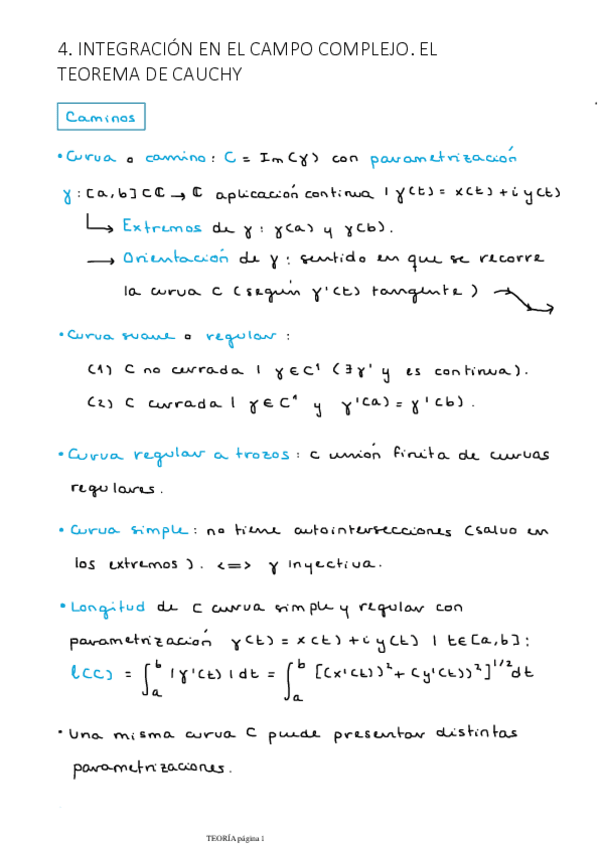 4. INTEGRACIÓN EN EL CAMPO COMPLEJO. EL
TEOREMA DE CAUCHY
Caminos
• Curva o camino: C = Im(γ) con parametrización
γ: [a,b] ⊂ ℂ → ℂ aplicación continua | γ(t) = x(t) + i y(t)
↳ Extremos de γ: γ(a) y γ(b).
→ Orientación de γ: sentido en que se recorre
la curva C (según γ'(t) tangente)
• Curva suave o regular:
(1) C no cerrada | γ ∈ C¹ (∃γ' y es continua).
(2) C cerrada | γ ∈ C¹ y γ'(a) = γ'(b).
• Curva regular a trozos: C unión finita de curvas
regulares.
• Curva simple: no tiene autointersecciones (salvo en
los extremos). <=> γ inyectiva.
• Longitud de C curva simple y regular con
parametrización γ(t) = x(t) + i y(t) | t∈[a,b]:
l(C) = ∫_a^b |γ'(t)| dt = ∫_a^b [(x'(t))² + (y'(t))²]^{1/2} dt
• Una misma curva C puede presentar distintas
parametrizaciones.
TEORÍA página 1